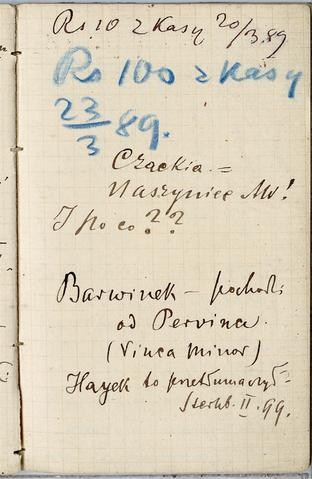 Rs 10 z Kasy 20/3.89
Rs 100 z Kasy
23/3 89.
Czackia =
Naszyniec Mv!
I po co??
Barwinek – pochodzi
od Pervinca.
(Vinca minor)
Hayek to przetłumaczył
II.99.